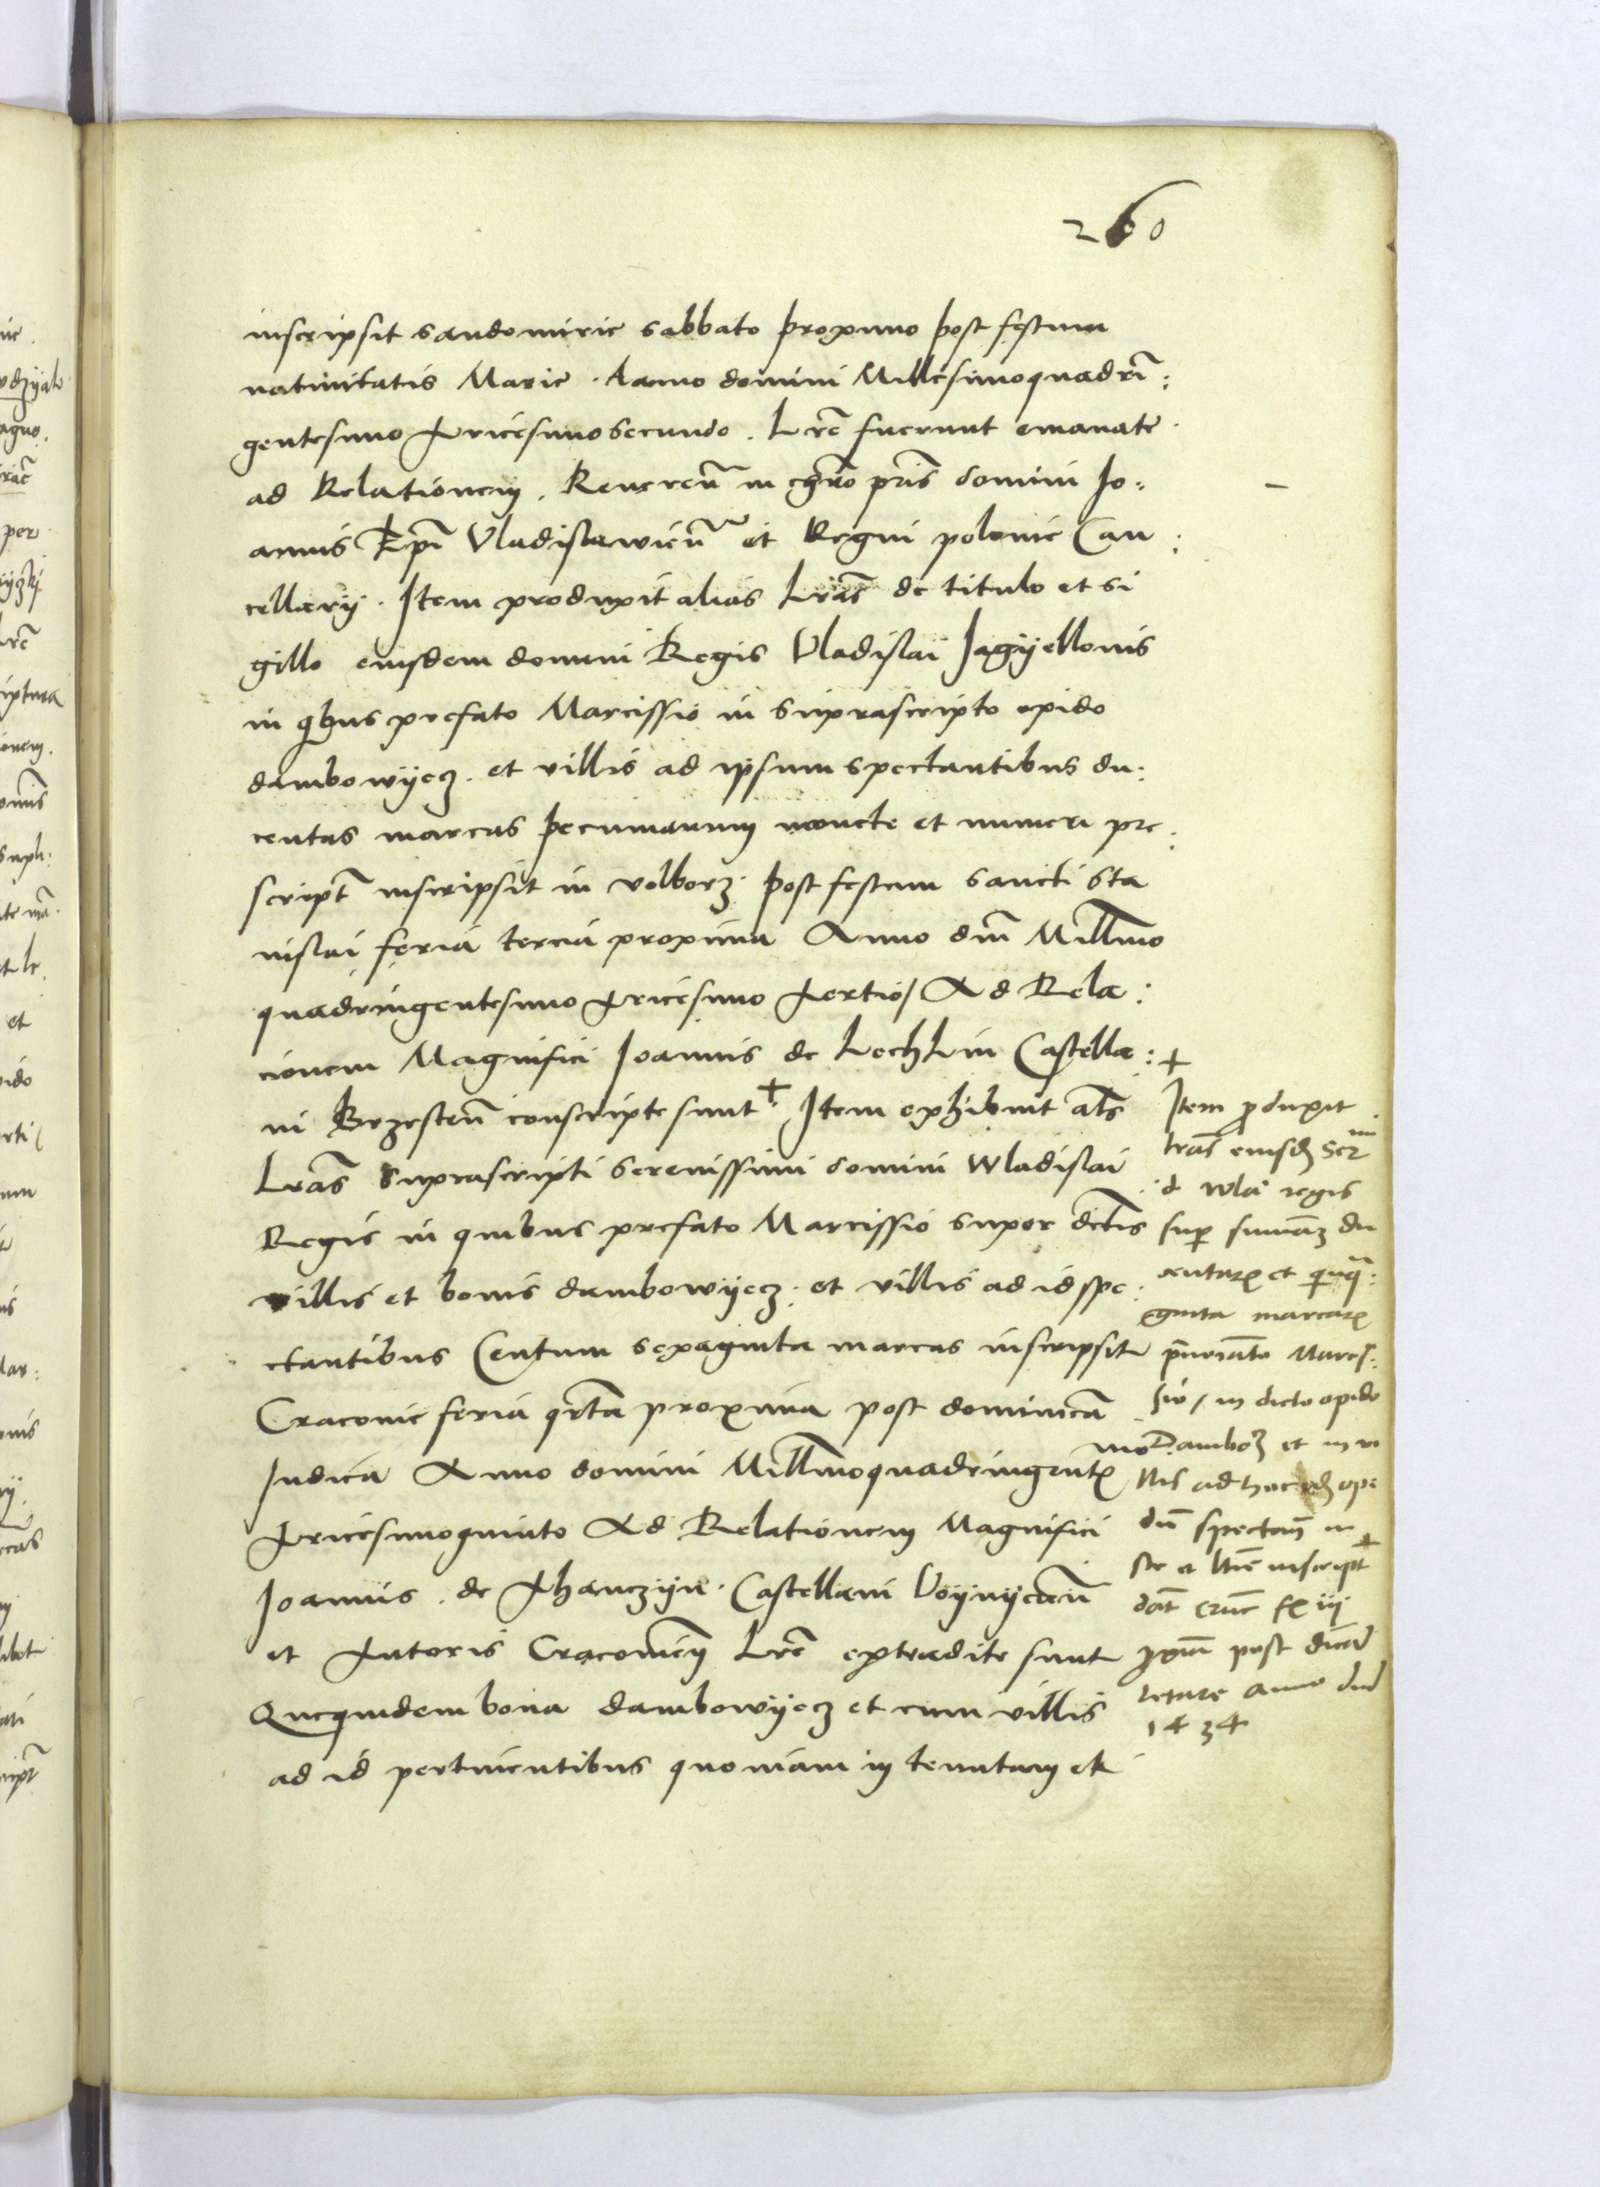 260
inscripsit sandomirie sabbato proximo post festum
nativitatis Marie . Anno domini Millesimoquadri:
gentesimo tricesimosecundo . Lre fuerunt emanate
ad Relationem . Reveren in chro pris domini Jo:
annis Epi Vladislawien et Regni polonie Can:
cellarij . Item produxit alias Lras de titulo et si
gillo eiusdem domini Regis Vladislai Jagyellonis
in qbus prefato Marcissio in suprascripto opido
dambowyecz . et villis ad ipsum spectantibus du:
centas marcas pecuniarum monete et numeri pre:
script inscripsit in volborz . post festum sancti sta
nislai feria tercia proxima Anno dni Millmo
quadringentesimo tricesimo tertio / Ad Rela:
cionem Magnifici Joannis de Lechlin Castella: +
ni Brzesten conscripte sunt + Item exhibuit als
Lras suprascripti serenissimi domini Wladislai
Regis in quibus prefato Marcissio super dctis
villis et bonis dambowyecz . et villis ad id spe:
ctantibus Centum sexaginta marcas inscripsit
Craconie feria qrta proxima post dominica
Judica Anno domini Millmoquadringente mo
tricesimoquinto Ad Relationem Magnifici
Joannis . de Thanczyn . Castellani Voynycen
et tutoris Cracovien Lre extradite sunt
Quequidem bona dambowyecz et cum villis
ad id pertinentibus quoniam in tenutam et
Item produxit
lras eiusd Ser mi
d Wla regis
sup summa du
centar et quinq:
ginta marcar
pnoiato Marcis:
sio / in dicto opido
Dambo et in vi
llis ad hoc id opi
du spectan in
inscript +
dat crac
pxia post dnica
letare anno dni
1434